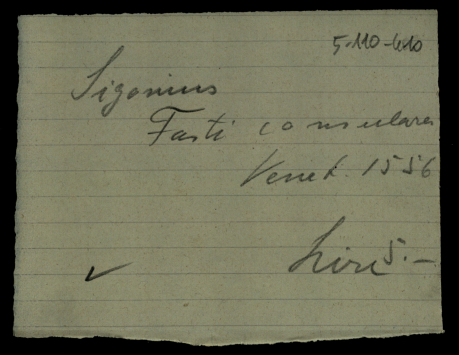 5-110-610
Sigonius
Fasti consulares
Venet. 1556
Lire 5.—